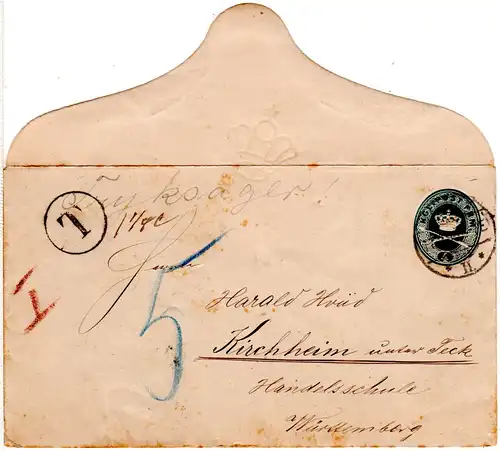 Tryksager!
T
5
Harald Hviid
Kirchheim unter Teck
Handelsschule
Württemberg